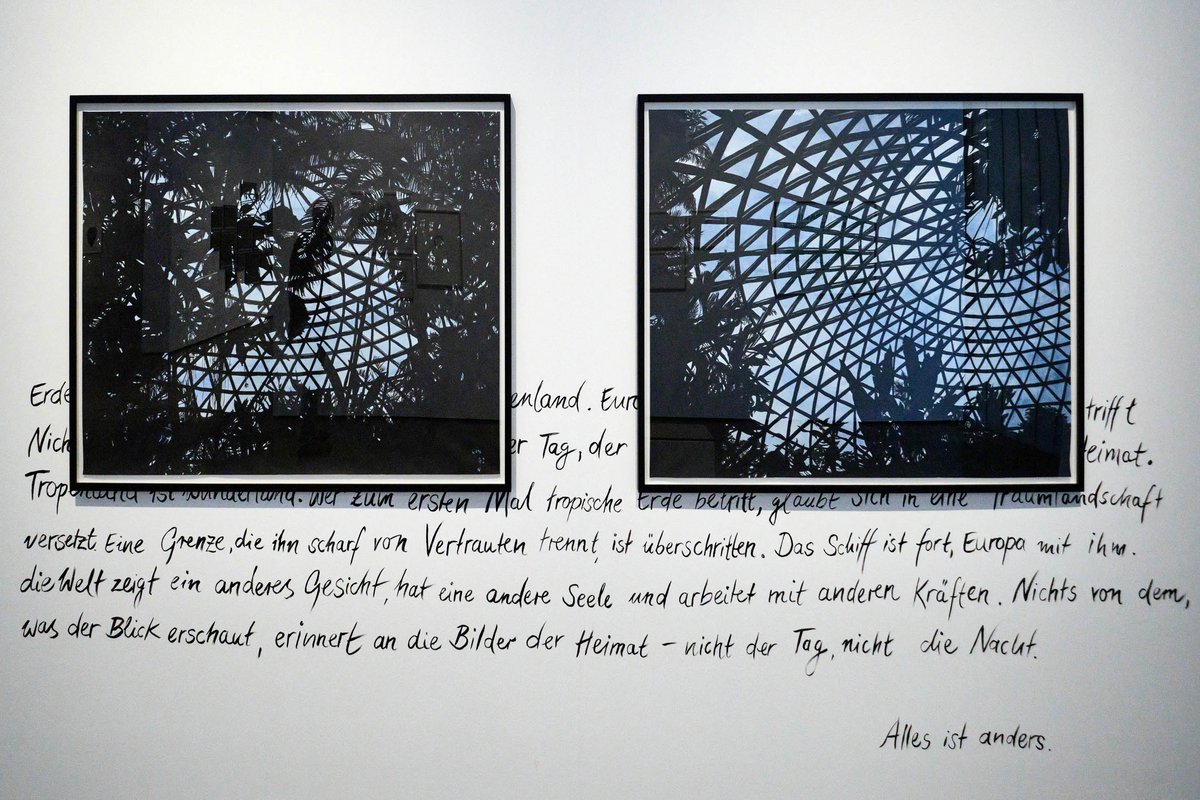 Erde enland. Euro trifft
Nich er Tag, der Heimat.
Tropenland ist Wunderland. Wer zum ersten Mal tropische Erde betritt, glaubt sich in eine Traumlandschaft
versetzt. Eine Grenze, die ihn scharf von Vertrauten trennt, ist überschritten. Das Schiff ist fort, Europa mit ihm.
die Welt zeigt ein anderes Gesicht, hat eine andere Seele und arbeitet mit anderen Kräften. Nichts von dem,
was der Blick erschaut, erinnert an die Bilder der Heimat – nicht der Tag, nicht die Nacht.
Alles ist anders.